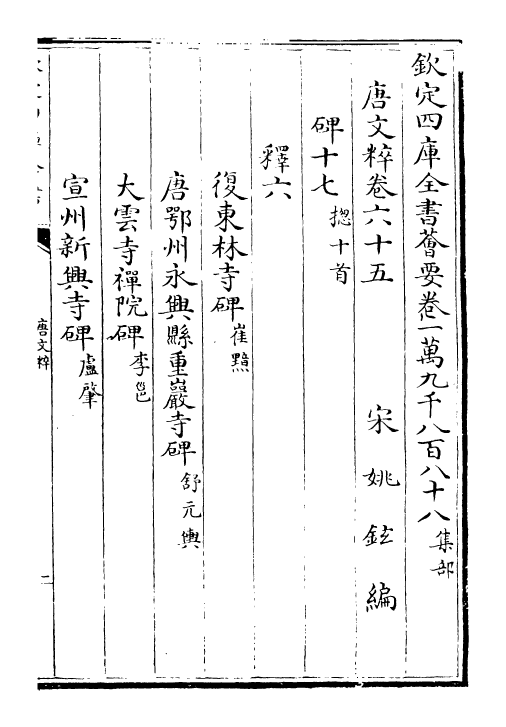 欽定四庫全書薈要卷一萬九千八百八十八集部
唐文粹卷六十五
宋姚鉉編
碑十七揔十首
釋六
復東林寺碑崔黯
唐鄂州永興縣重巖寺碑舒元輿
大雲寺禪院碑李邕
宣州新興寺碑盧肇
唐文粹